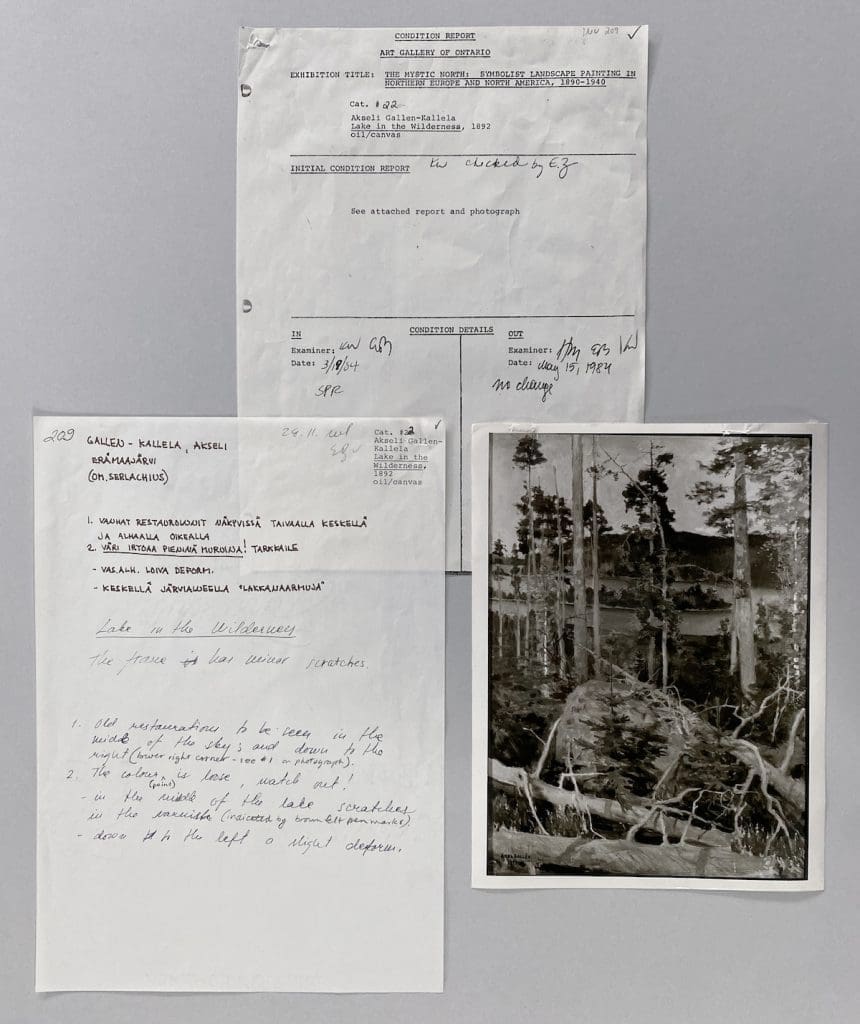 INV 209 ✓
CONDITION REPORT
ART GALLERY OF ONTARIO
EXHIBITION TITLE: THE MYSTIC NORTH: SYMBOLIST LANDSCAPE PAINTING IN
NORTHERN EUROPE AND NORTH AMERICA, 1890-1940
Cat. #22
Akseli Gallen-Kallela
Lake in the Wilderness, 1892
oil/canvas
INITIAL CONDITION REPORT KW checked by E.Z
See attached report and photograph
CONDITION DETAILS
IN
Examiner: KW
Date: 3/18/84
SPR
OUT
Examiner:
Date: May 15, 1984
no change
209
29.11.
✓
Cat. #22
Akseli Gallen-
Kallela
Lake in the
Wilderness,
1892
oil/canvas
GALLEN-KALLELA, AKSELI
ERÄMAAJÄRVI
(OM. SERLACHIUS)
1. VANHAT RESTAUROINNIT NÄKYVISSÄ TAIVAALLA KESKELLÄ
JA ALHAALLA OIKEALLA
2. VÄRI IRTOAA PIENINÄ MURUINA! TARKKAILE
- VAS.ALH. LOIVA DEFORM.
- KESKELLÄ JÄRVIALUEELLA "LAKKANAARMUJA"
Lake in the Wilderness
The frame has minor scratches.
1. Old restaurations to be seen in the
middle of the sky; and down to the
right (lower right corner - see #1 on photograph).
2. The colour (paint) is loose, watch out!
- in the middle of the lake scratches
in the varnishe (indicated by brown felt pen marks)
- down to the left a slight deform.